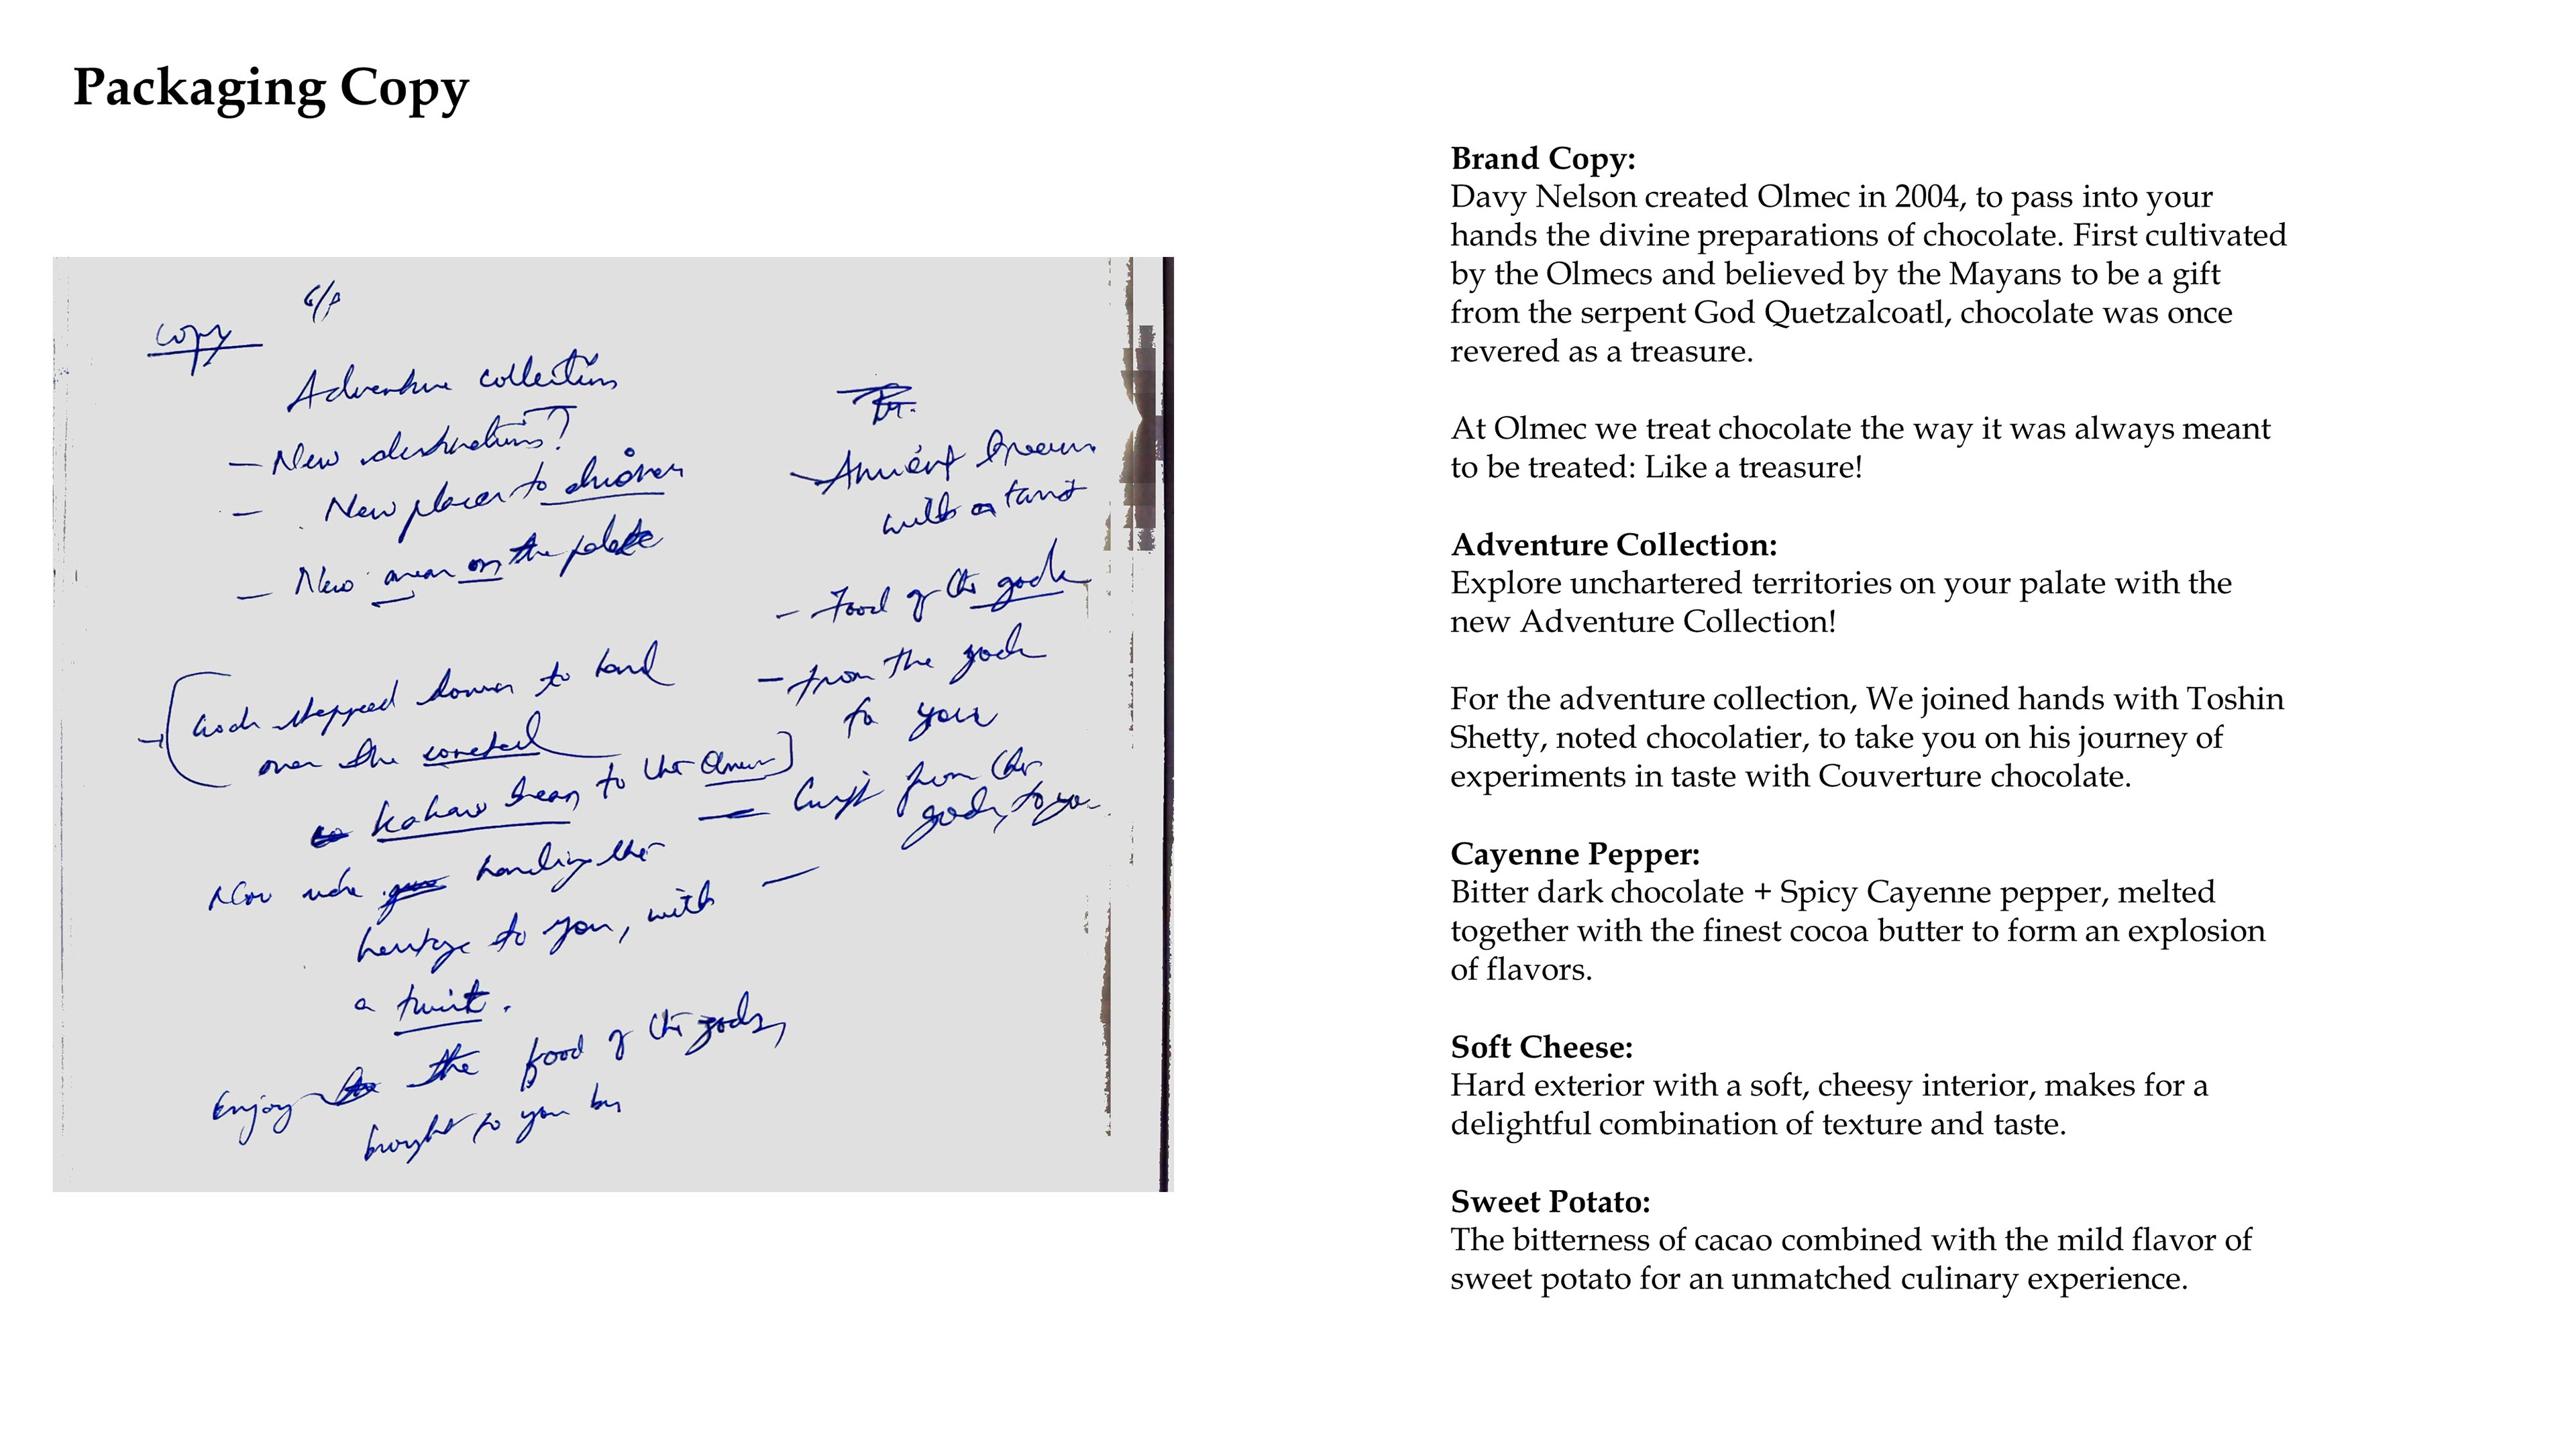 Packaging Copy
copy
Adventure collection
- New destinations?
- New places to
- New areas on the palate
Gods stepped down to hand
over the coveted
kakaw bean to the Olmecs]
Now we're handing the
heritage to you, with
a twist.
Enjoy the food of the gods,
brought to you by
- Ancient
with a twist
- Food of the gods
- From the gods
to you
- Gift from the
gods, to you
Brand Copy:
Davy Nelson created Olmec in 2004, to pass into your
hands the divine preparations of chocolate. First cultivated
by the Olmecs and believed by the Mayans to be a gift
from the serpent God Quetzalcoatl, chocolate was once
revered as a treasure.
At Olmec we treat chocolate the way it was always meant
to be treated: Like a treasure!
Adventure Collection:
Explore unchartered territories on your palate with the
new Adventure Collection!
For the adventure collection, We joined hands with Toshin
Shetty, noted chocolatier, to take you on his journey of
experiments in taste with Couverture chocolate.
Cayenne Pepper:
Bitter dark chocolate + Spicy Cayenne pepper, melted
together with the finest cocoa butter to form an explosion
of flavors.
Soft Cheese:
Hard exterior with a soft, cheesy interior, makes for a
delightful combination of texture and taste.
Sweet Potato:
The bitterness of cacao combined with the mild flavor of
sweet potato for an unmatched culinary experience.